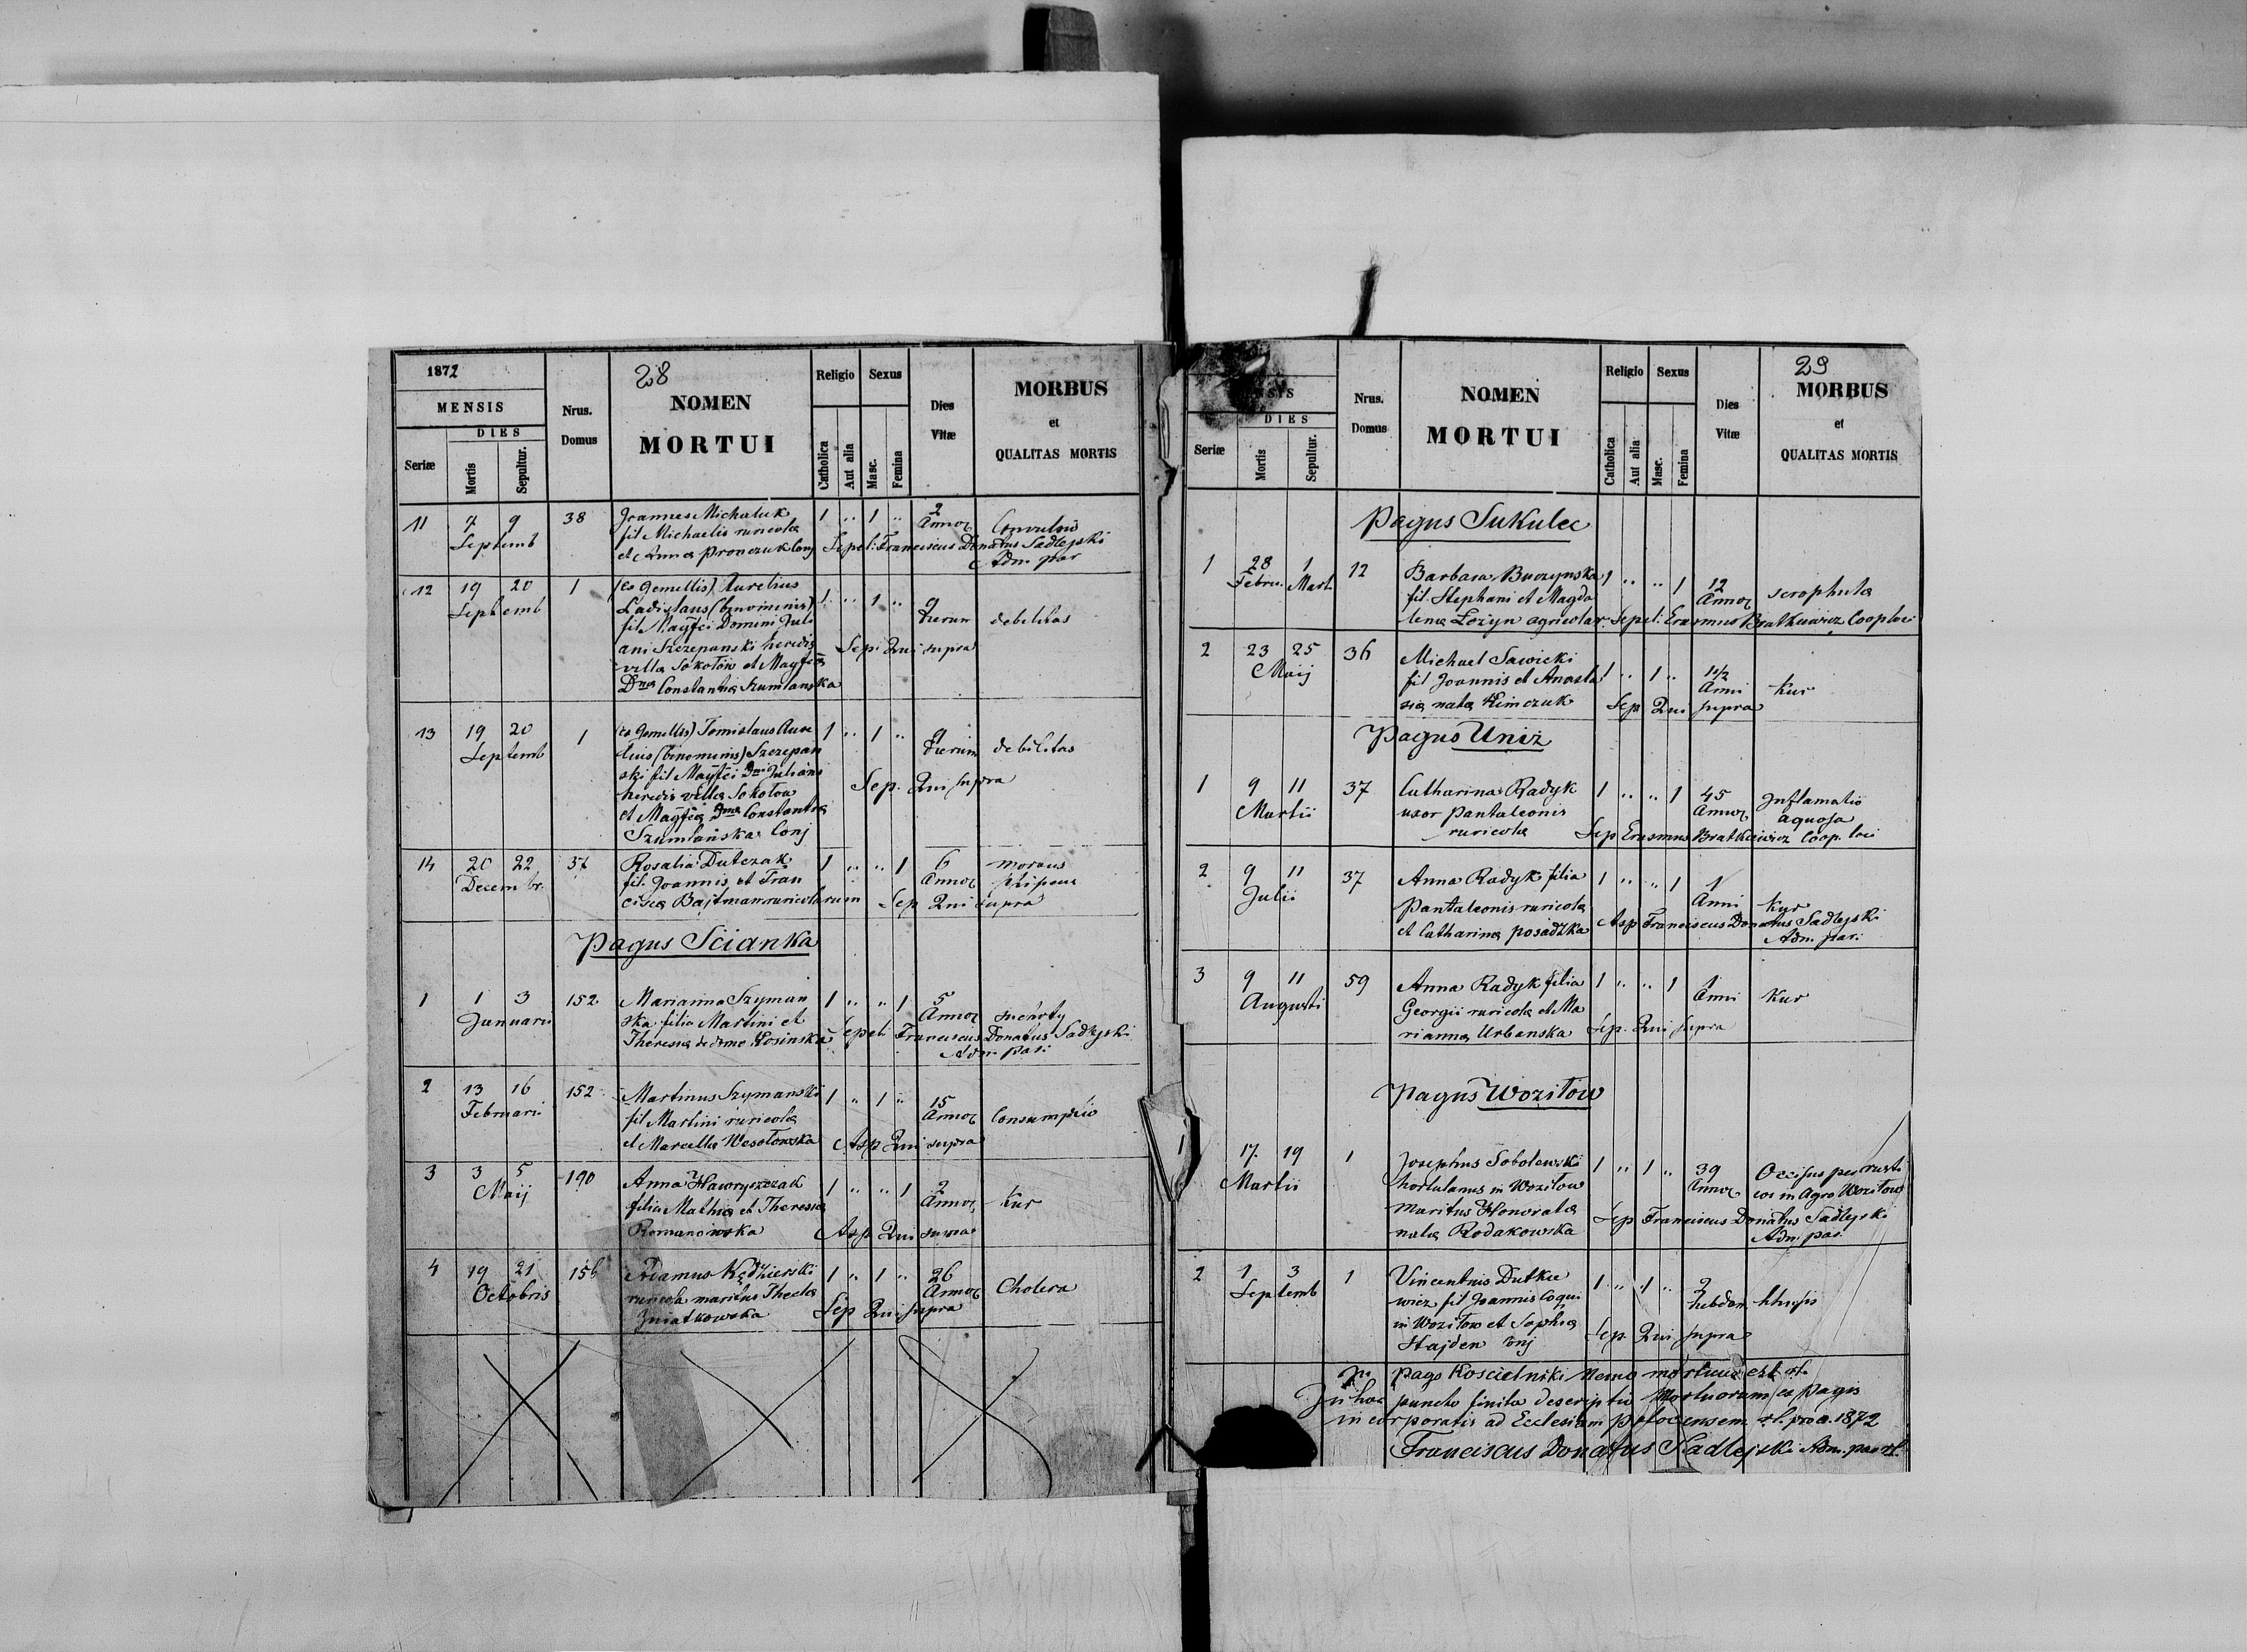 1872
28
MENSIS
DIES
Seriæ
Mortis
Sepultur.
Nrus.
Domus
NOMEN
MORTUI
Religio
Sexus
Catholica
Aut alia
Masc.
Femina
Dies
Vitæ
MORBUS
et
QUALITAS MORTIS
11 7 9 38 Joannes Michaluk 1 " 1 " 2
Septemb fil Michaelis ruricola Annor
et Anna Pronczuk Conj Sepel: Franciscus Donatus Sadlejski
Adm. par
12 19 20 1 (ex Gemellis) Aurelius
Septemb Ladislaus (binominis) 1 " 1 " 9
fil Magfci Domini Juli dierum debilitas
ani Szczepanski heredis Sep: Qui supra
villa Sokołow et Magfca
Dna Constantia Szumlanska
13 19 20 1 (ex Gemellis) Tomislaus Aure 1 " 1 " 9
Septemb lius (binominis) Szczepan dierum debilitas
ski fil Magfci Dni Juliani
heredis villa Sokołow Sep. Qui supra
et Magfca Dna Constantia
Szumlańska Conj
14 20 22 37 Rosalia Dutczak 1 " " 1 6
Decembr. fil. Joannis et Fran Annor
cisca Bajtman ruricolarum Sep Qui supra
Pagus Scianka
1 1 3 152 Marianna Szyman 1 " " 1 5
Januarii ska filia Martini et Annor suchoty
Theresia de domo Łosinska Sepeli Franciscus Donatus Sadlejski
Adm. par:
2 13 16 152 Martinus Szymanski 1 " 1 " 15
Februarii fil Martini ruricola Annor Consumptio
et Marcella Wesołowska Asp Qui supra
3 3 5 190 Anna Hawryszczak 1 " " 1 2
Maij filia Mathia et Theresia Annor Kur
Romanowska Asp Qui supra
4 19 21 156 Adamus Kędzierski 1 " 1 " 26
Octobris ruricola maritus Thecla Annor Cholera
Sep Qui supra
29
DIES
Seriæ
Mortis
Sepultur.
Nrus.
Domus
NOMEN
MORTUI
Religio
Sexus
Catholica
Aut alia
Masc.
Femina
Dies
Vitæ
MORBUS
et
QUALITAS MORTIS
Pagus Sukulec
1 28 1 12 Barbara Buczynska 1 " " 1 12
Febru. Mart. fil. Stephani et Magda Annor scrophula
lena Łozyn agricolar. Sepel: Erasmus Bratkiewicz Coop loci
2 23 25 36 Michael Sawicki
Maij fil Joannis et Anasta 1 " 1 " 1 1/2
sia nata Kimczuk Anni Kur
Sep Qui supra
Pagus Uniz
1 9 11 37 Catharina Radyk 1 " " 1 45 Inflamatio
Martii uxor Pantaleonis Annor aquosa
ruricola Sep Erasmus Bratkiewicz Coop. loci
2 9 11 37 Anna Radyk filia 1 " " 1 1
Julii Pantaleonis ruricola Anni Kur
et Catharina Posadzka Asp Franciscus Donatus Sadlejski
Adm. par:
3 9 11 59 Anna Radyk filia 1 " " 1 1
Augusti Georgii ruricola et Ma Anni Kur
rianna Urbanska Sep. Qui supra
Pagus Woziłow
1 17. 19 1 Josephus Sobolewski 1 " 1 " 39 Occisus per rusti
Martii hortulanus in Woziłow Annor cos in Agro Woziłow
maritus Honorata Sep Franciscus Donatus Sadlejski
nata Rodakowska Adm. par.
2 1 3 1 Vincentius Dutkie 1 " 1 " 2
Septemb wicz fil Joannis Coqui hebdom
in Woziłow et Sophia
Hajden conj Sep. Qui supra
In Pago Koscielniki Nemo mortuus est rl.
In hoc puncto finita descriptio Mortuorum ex Pagis
incorporatis ad Ecclesiam Potocensem rl. pro a. 1872
Franciscus Donatus Sadlejski Adm. par rl.